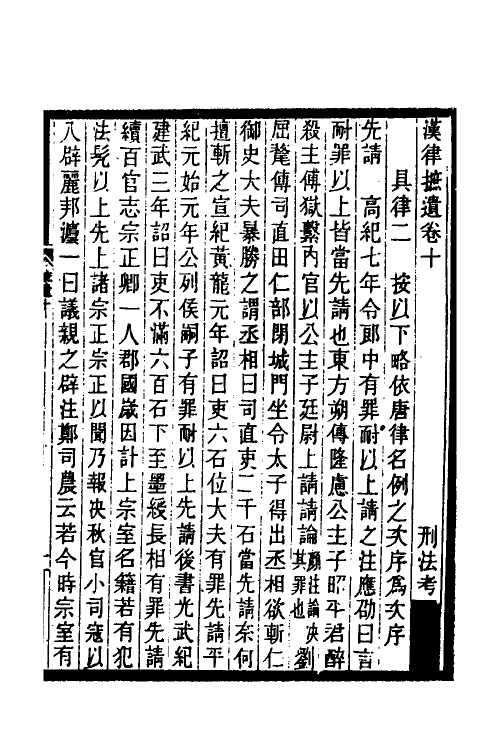 漢律摭遺卷十
刑法考
具律二　按以下略依唐律名例之次序爲次序
先請　高紀七年令郎中有罪耐以上請之注應劭曰言
耐罪以上皆當先請也東方朔傳隆慮公主子昭平君醉
殺主傅獄繫內官以公主子廷尉上請請論顏注論決其罪也劉
屈氂傳司直田仁部閉城門坐令太子得出丞相欲斬仁
御史大夫暴勝之謂丞相曰司直吏二千石當先請柰何
擅斬之宣紀黃龍元年詔曰吏六石位大夫有罪先請平
紀元始元年公列侯嗣子有罪耐以上先請後書光武紀
建武三年詔曰吏不滿六百石下至墨綬長相有罪先請
續百官志宗正卿一人郡國歲因計上宗室名籍若有犯
法髡以上先上諸宗正宗正以聞乃報決秋官小司寇以
八辟麗邦灋一曰議親之辟注鄭司農云若今時宗室有